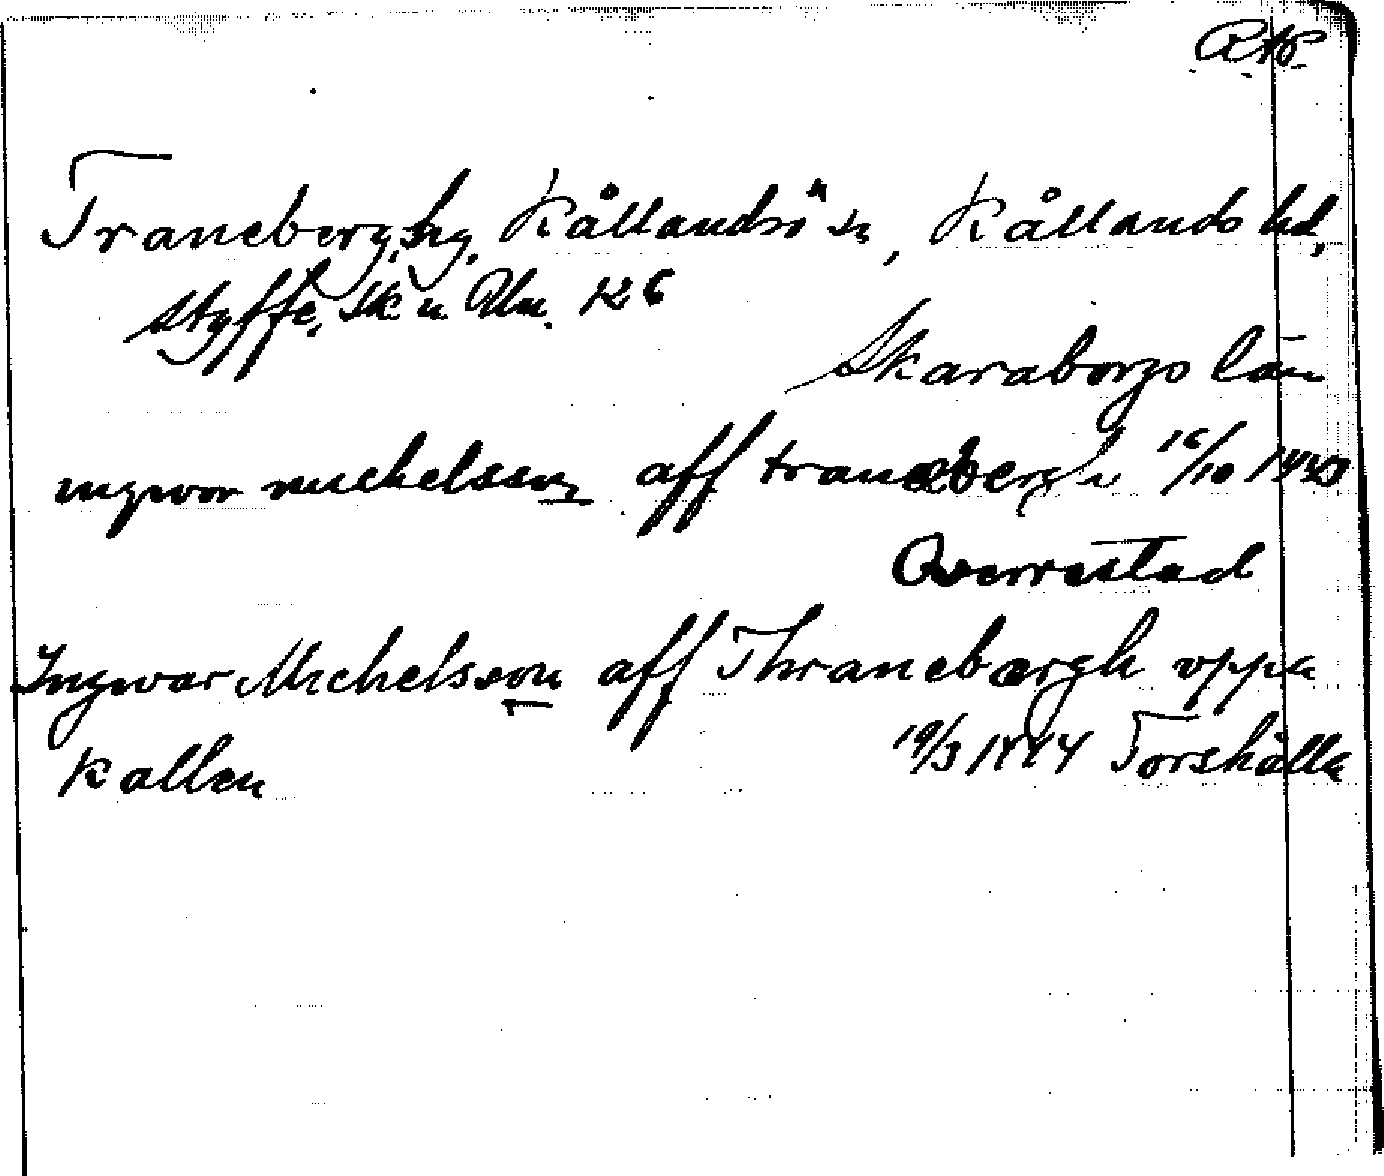 Traneberg, hg, Kållandsö sn, Kållands hd,
Styffe, Sk u Un. 126
Skaraborgs län
ingwor michelsson aff tranebergh 16/10
Owerrestad
Ingwar Michelsson aff Thranebærgh vppa
Kallen 19/3 1444 Torshälla